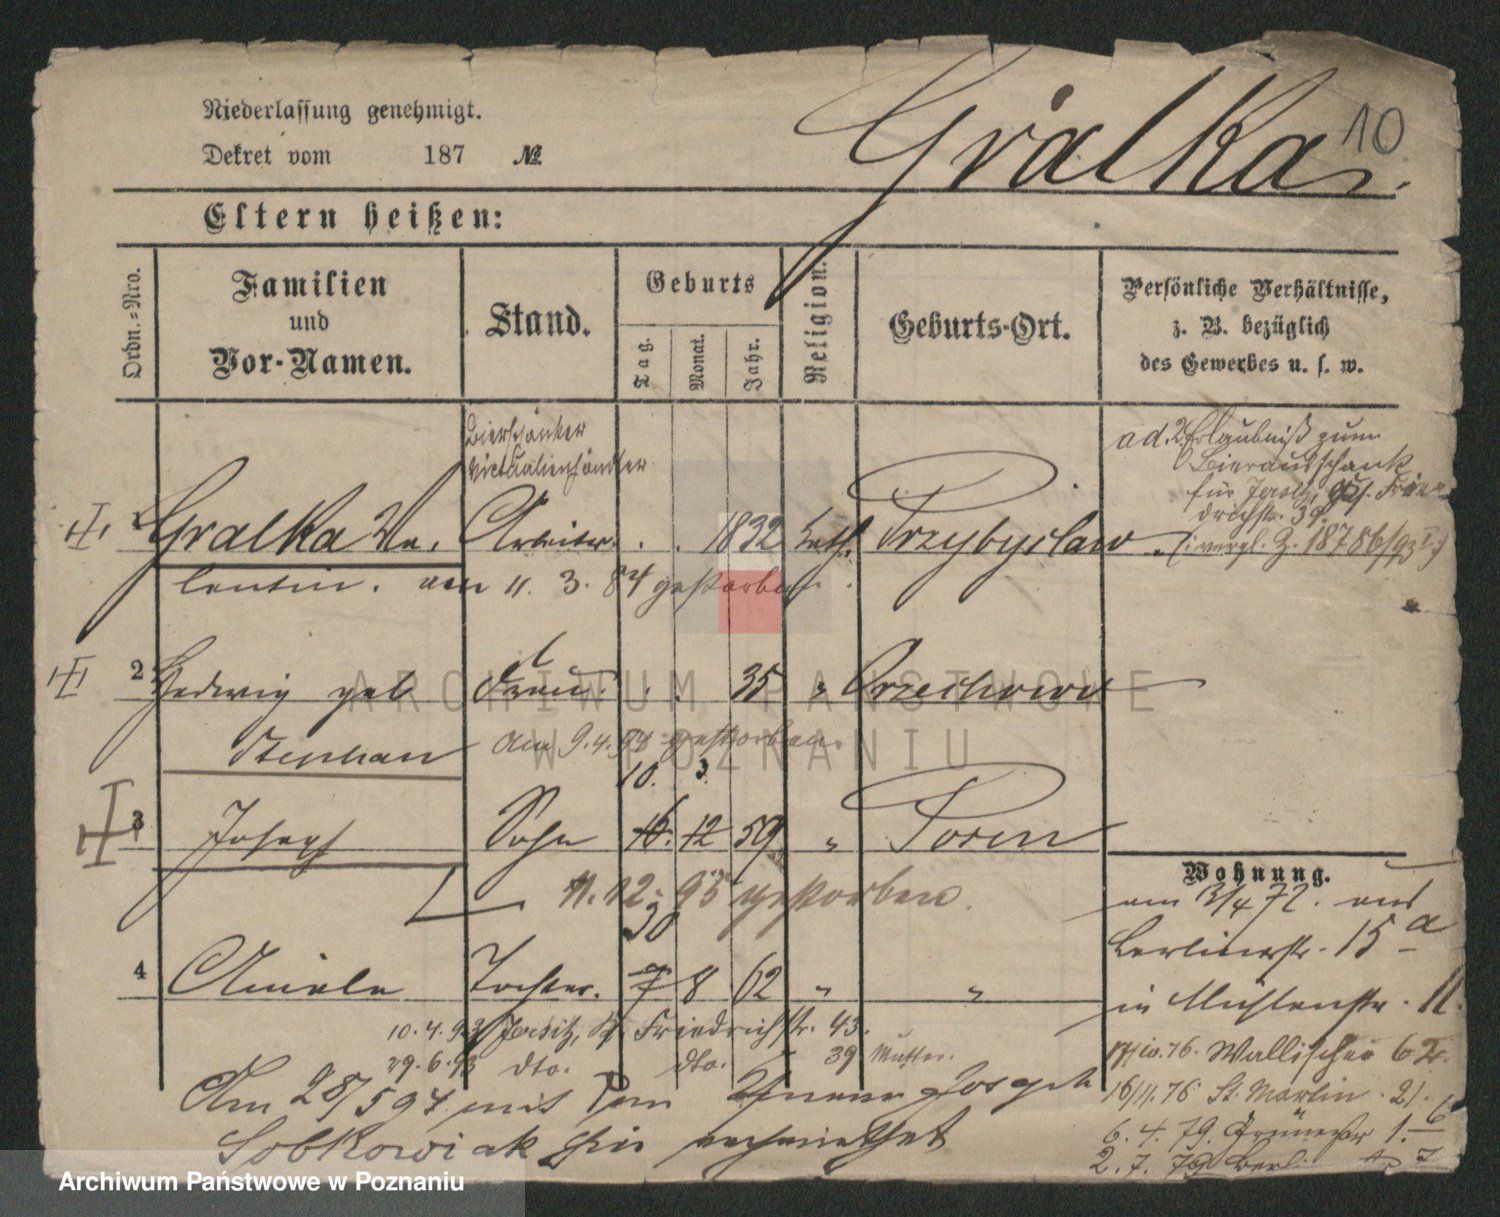 Niederlassung genehmigt.
Dekret vom 187 №
Gralka.
10
Eltern heißen:
Ordn.=Nro.
Familien
und
Vor-Namen.
Stand.
Geburts
Tag.
Monat.
Jahr.
Religion.
Geburts-Ort.
Persönliche Verhältnisse,
z. B. bezüglich
des Gewerbes u. s. w.
Bierschänker
Victualienhändler
ad. 2 Erlaubniß zum
Bierausschank
für Jersitz, Frie
drichstr. 39.
(: vergl. 1878
1 Gralka Va, Arbeiter. . . 1832 kath. Przybyslaw.
lentin. am 11. 3. 84 gestorben.
2 Hedwig geb Frau. . . 35 " Orzechowo
Stephan am 9.4.94 gestorben.
10. 3.
3 Joseph Sohn 16. 12 59 " Posen
11. 12. 95 gestorben.
30
4 Tochter. 7 8 62 " "
10.4.93 Jersitz, Friedrichstr. 43.
29.6.93 dto. dto. 39 Mutter.
Am 28/5 94 mit dem Joseph
Sobkowiak hier
Wohnung.
am /4 72. aus
Berlinerstr. 15 a
in Mühlenstr. 11.
10.76. Wallischei 62.
16/11.76 St. Martin 21.
6.4.79. 1.
2.7.79 Berl.
ARCHIWUM PAŃSTWOWE
W POZNANIU
Archiwum Państwowe w Poznaniu